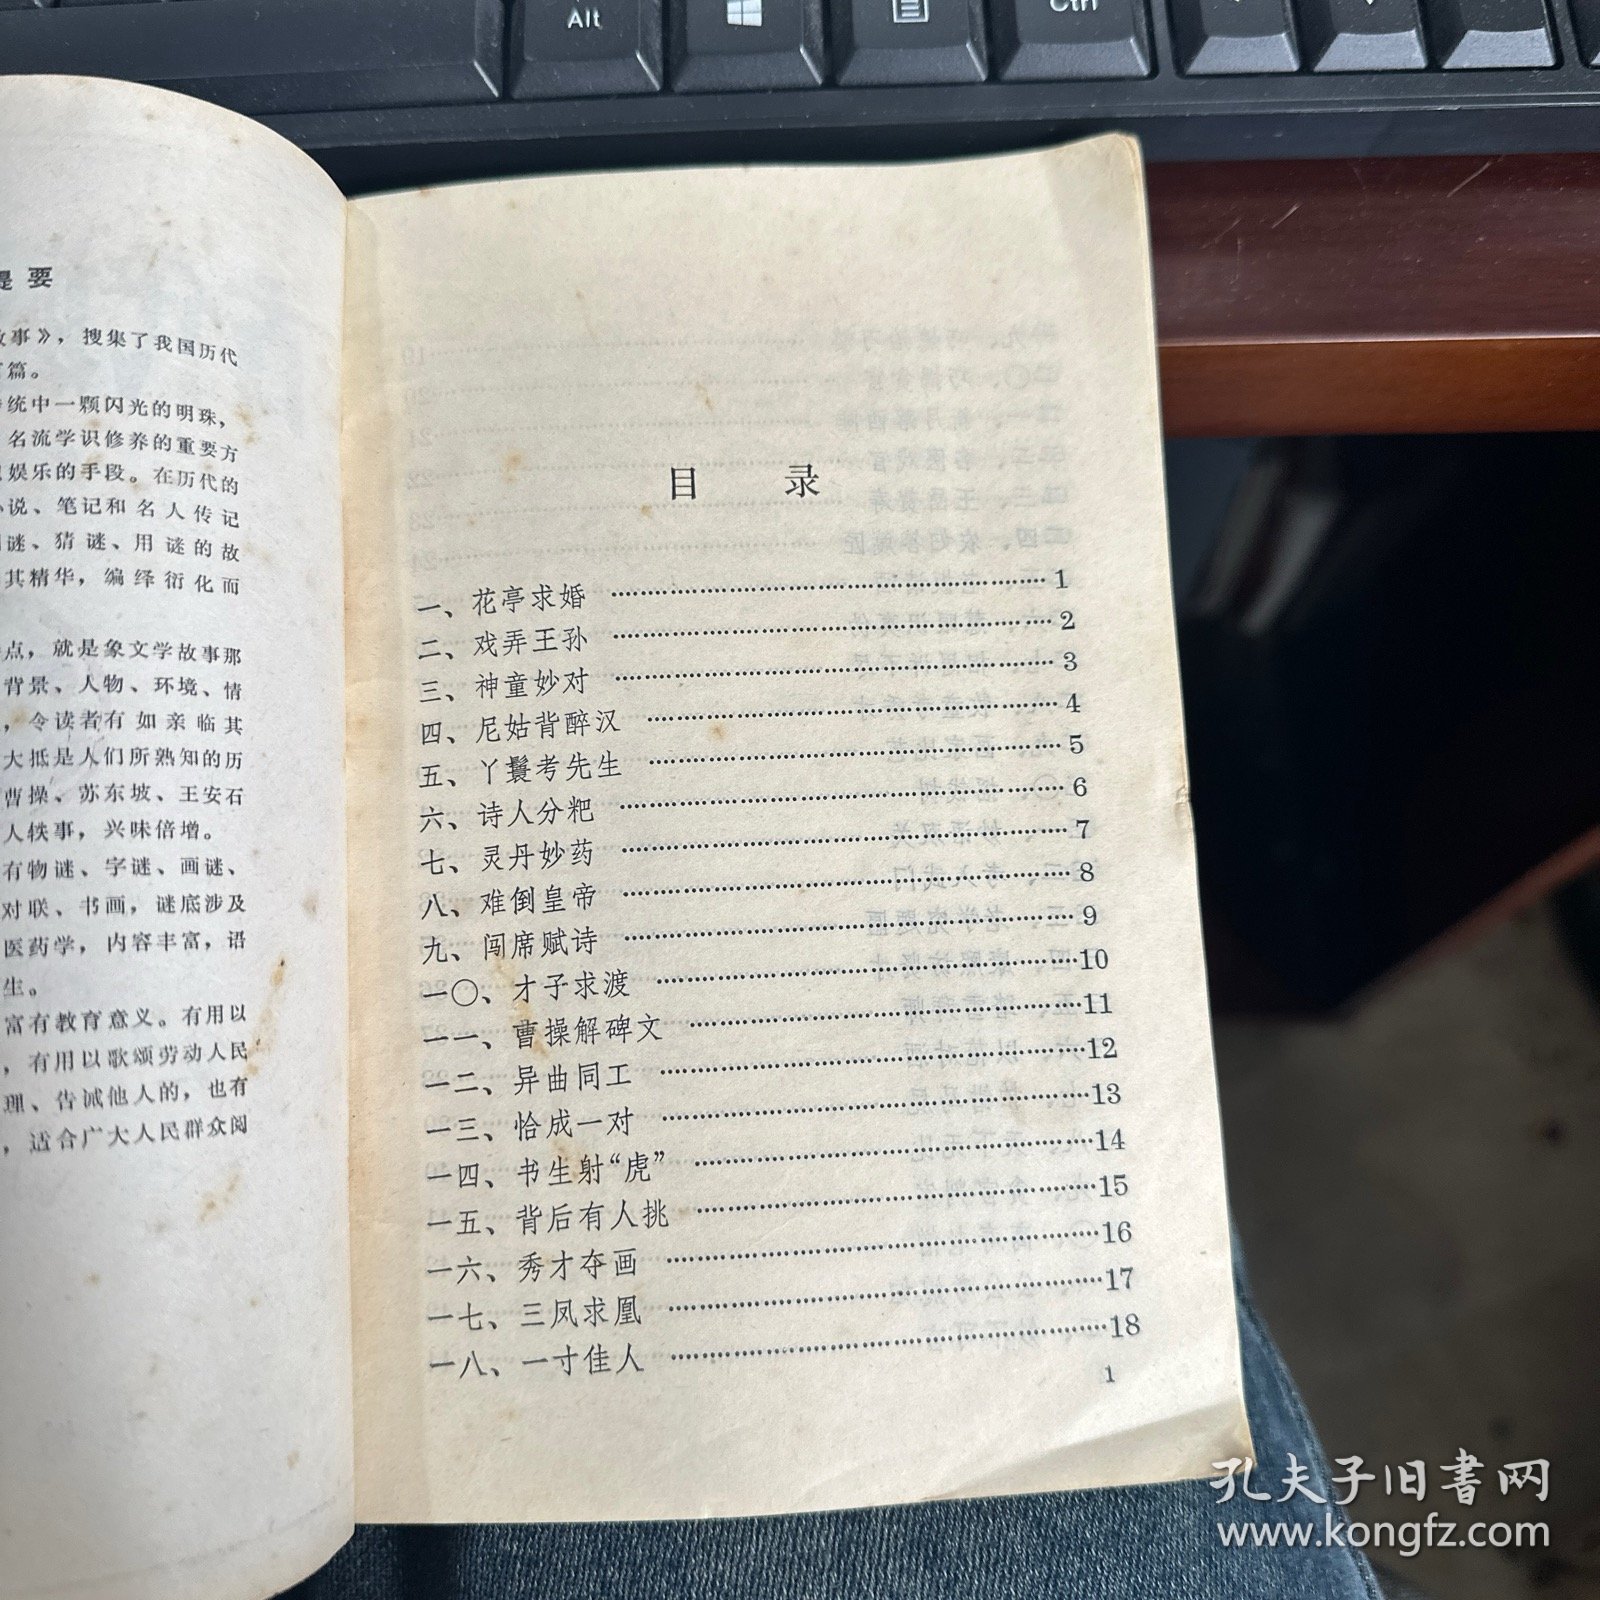 Alt
Ctrl
提要
故事》，搜集了我国历代
篇。
统中一颗闪光的明珠，
名流学识修养的重要方
娱乐的手段。在历代的
说、笔记和名人传记
谜、猜谜、用谜的故
其精华，编绎衍化而
点，就是象文学故事那
背景、人物、环境、情
，令读者有如亲临其
大抵是人们所熟知的历
曹操、苏东坡、王安石
人轶事，兴味倍增。
有物谜、字谜、画谜、
对联、书画，谜底涉及
医药学，内容丰富，语
生。
富有教育意义。有用以
，有用以歌颂劳动人民
理、告诫他人的，也有
，适合广大人民群众阅
目 录
一、花亭求婚 ……………… 1
二、戏弄王孙 ……………… 2
三、神童妙对 ……………… 3
四、尼姑背醉汉 ……………… 4
五、丫鬟考先生 ……………… 5
六、诗人分粑 ……………… 6
七、灵丹妙药 ……………… 7
八、难倒皇帝 ……………… 8
九、闯席赋诗 ……………… 9
一〇、才子求渡 ……………… 10
一一、曹操解碑文 ……………… 11
一二、异曲同工 ……………… 12
一三、恰成一对 ……………… 13
一四、书生射“虎” ……………… 14
一五、背后有人挑 ……………… 15
一六、秀才夺画 ……………… 16
一七、三凤求凰 ……………… 17
一八、一寸佳人 ……………… 18
1
孔夫子旧书网
www.kongfz.com